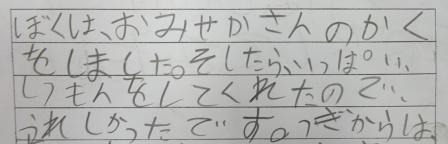 ぼくは、おみせかさんのかく
をしました。そしたら、いっぱい、
しつもんをしてくれたので、
うれしかったです。つぎからは、